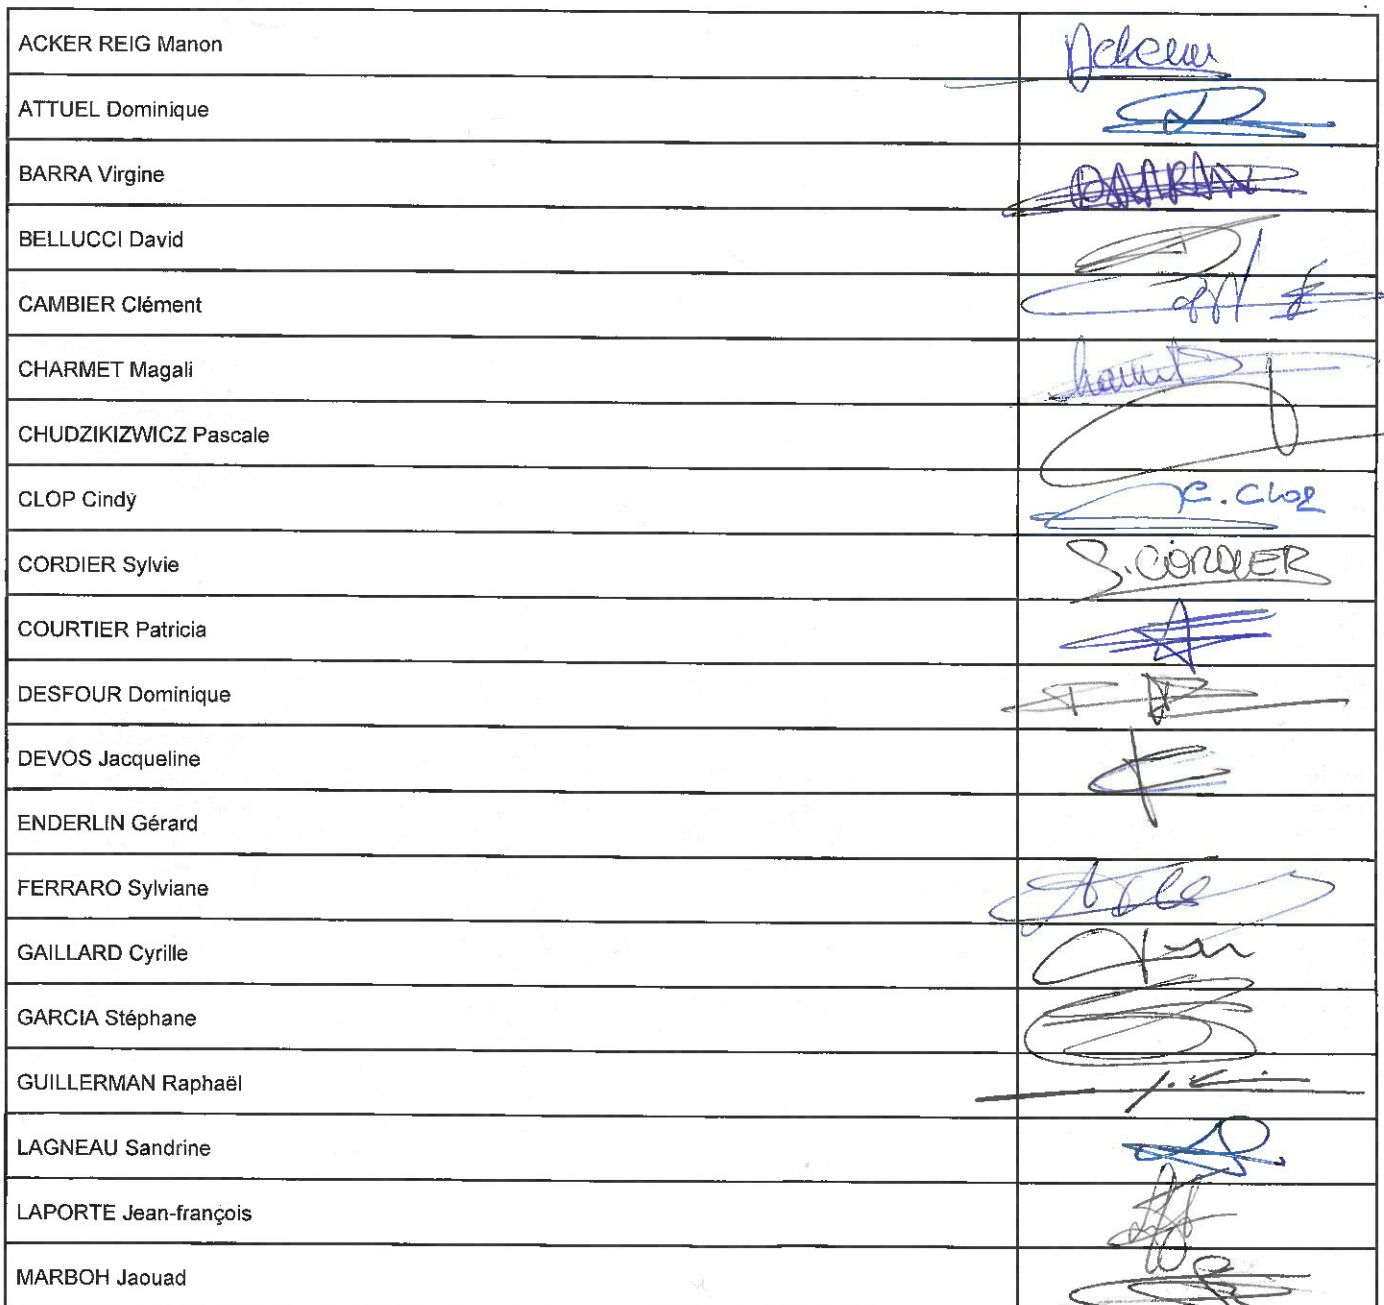 ACKER REIG Manon
ATTUEL Dominique
BARRA Virgine
BELLUCCI David
CAMBIER Clément
CHARMET Magali
CHUDZIKIZWICZ Pascale
CLOP Cindy C. Clop
CORDIER Sylvie S. CORDIER
COURTIER Patricia
DESFOUR Dominique
DEVOS Jacqueline
ENDERLIN Gérard
FERRARO Sylviane
GAILLARD Cyrille
GARCIA Stéphane
GUILLERMAN Raphaël
LAGNEAU Sandrine
LAPORTE Jean-françois
MARBOH Jaouad